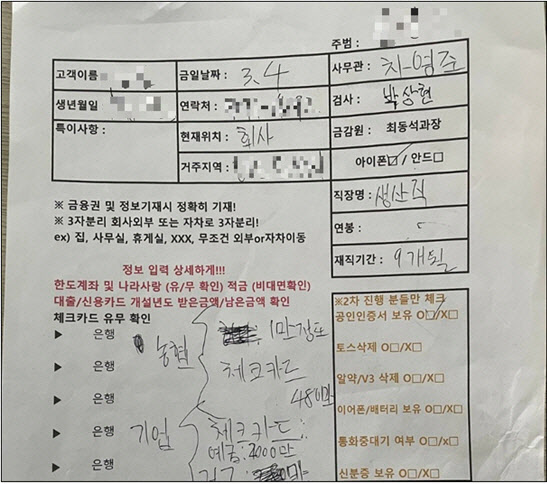 주범 :
고객이름 금일날짜 : 3.4 사무관 : 차영준
생년월일 연락처 : 검사 : 박상현
특이사항 : 현재위치 : 회사 금감원 : 최동석과장
거주지역 : 아이폰☑ / 안드□
직장명 : 생산직
연봉 : -
재직기간 : 9개월
※ 금융권 및 정보기재시 정확히 기재!
※ 3자분리 회사외부 또는 자차로 3자분리!
ex) 집, 사무실, 휴게실, XXX, 무조건 외부or자차이동
정보 입력 상세하게!!!
한도계좌 및 나라사랑 (유/무 확인) 적금 (비대면확인)
대출/신용카드 개설년도 받은금액/남은금액 확인
체크카드 유무 확인
▶ 은행 농협 1만정도
▶ 은행 체크카드
▶ 은행 48이만
▶ 은행 기업 체크카드
▶ 은행 예금:2000만
▶ 은행
※2차 진행 분들만 체크
공인인증서 보유 O☑/X□
토스삭제 O□/X□
알약/V3 삭제 O□/X□
이어폰/배터리 보유 O□/X□
통화중대기 여부 O□/x□
신분증 보유 O□/X□